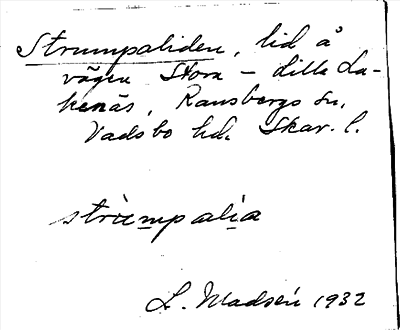 Strumpaliden, lid å
vägen Stora – Lilla La-
kenäs, Ransbergs sn,
Vadsbo hd. Skar. l.
strùmpalìa
L. Madsén 1932